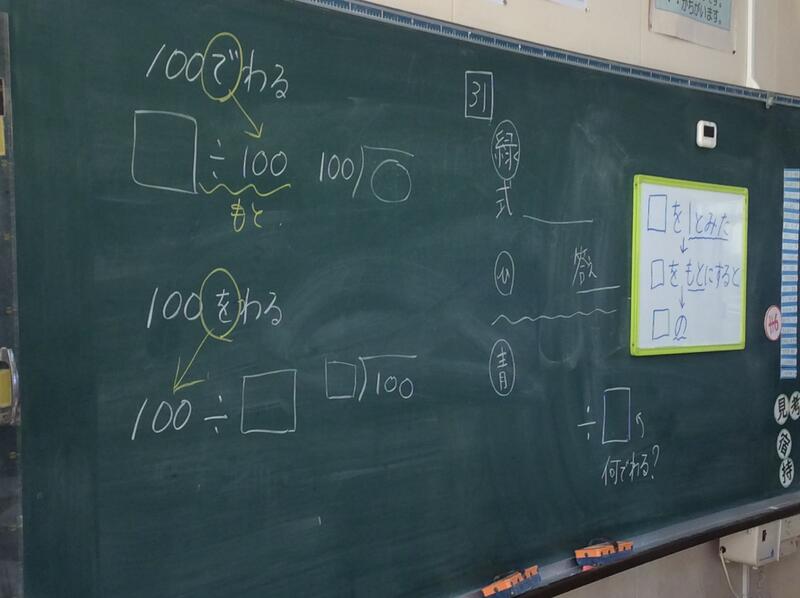 100でわる
□÷100
100)○
もと
100をわる
100÷□
□)100
31
緑
式
ひ
答え
青
÷□
何でわる?
□を1とみた
↓
□をもとにすると
↓
□の
見
考
持
がちがいます。